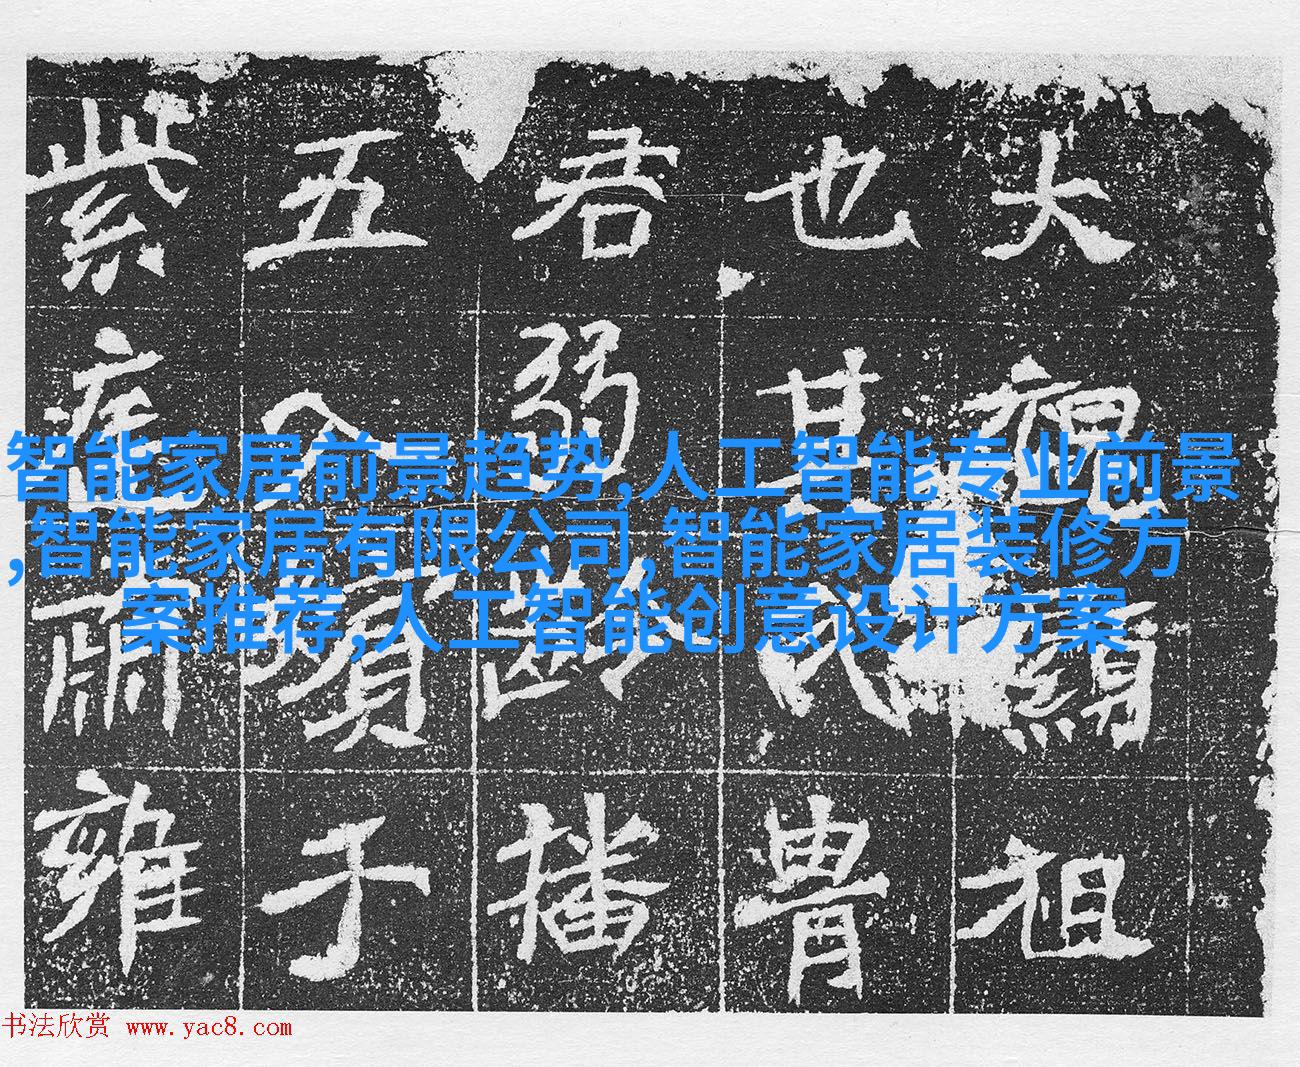 大祖
也其胄
君弱齡播
五于
紫庭肅雍
智能家居前景趋势,人工智能专业前景
,智能家居有限公司,智能家居装修方
案推荐,人工智能创意设计方案
书法欣赏 www.yac8.com